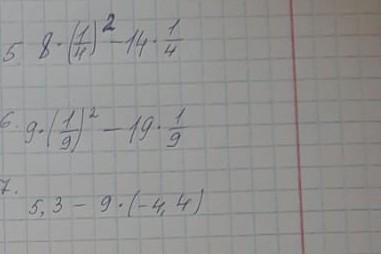 5 8·(1/4)² - 14·1/4
6. 9·(1/9)² - 19·1/9
7.
5,3 - 9·(-4,4)